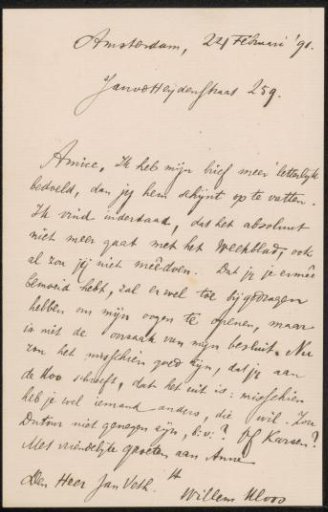 Amsterdam, 24 Februari '91.
Jan v. d. Heydenstraat 259.
Amice, Ik heb mijn brief meer letterlijk
bedoeld, dan jij hem schijnt op te vatten.
Ik vind inderdaad, dat het absoluut
niet meer gaat met het Weekblad, ook
al zou jij niet meêdoen. Dat je je ermêe
bemoeid hebt, zal er wel toe bijgedragen
hebben om mijn oogen te openen, maar
is niet de oorzaak van mijn besluit. Nu
zou het misschien goed zijn, dat je aan
de Koo schreeft, dat het uit is: misschien
heb je wel iemand anders, die wil. Zou
niet genegen zijn, b.v.? Of Karsen?
Met vriendelijke groeten aan Anna
Den Heer Jan Veth.
Willem Kloos